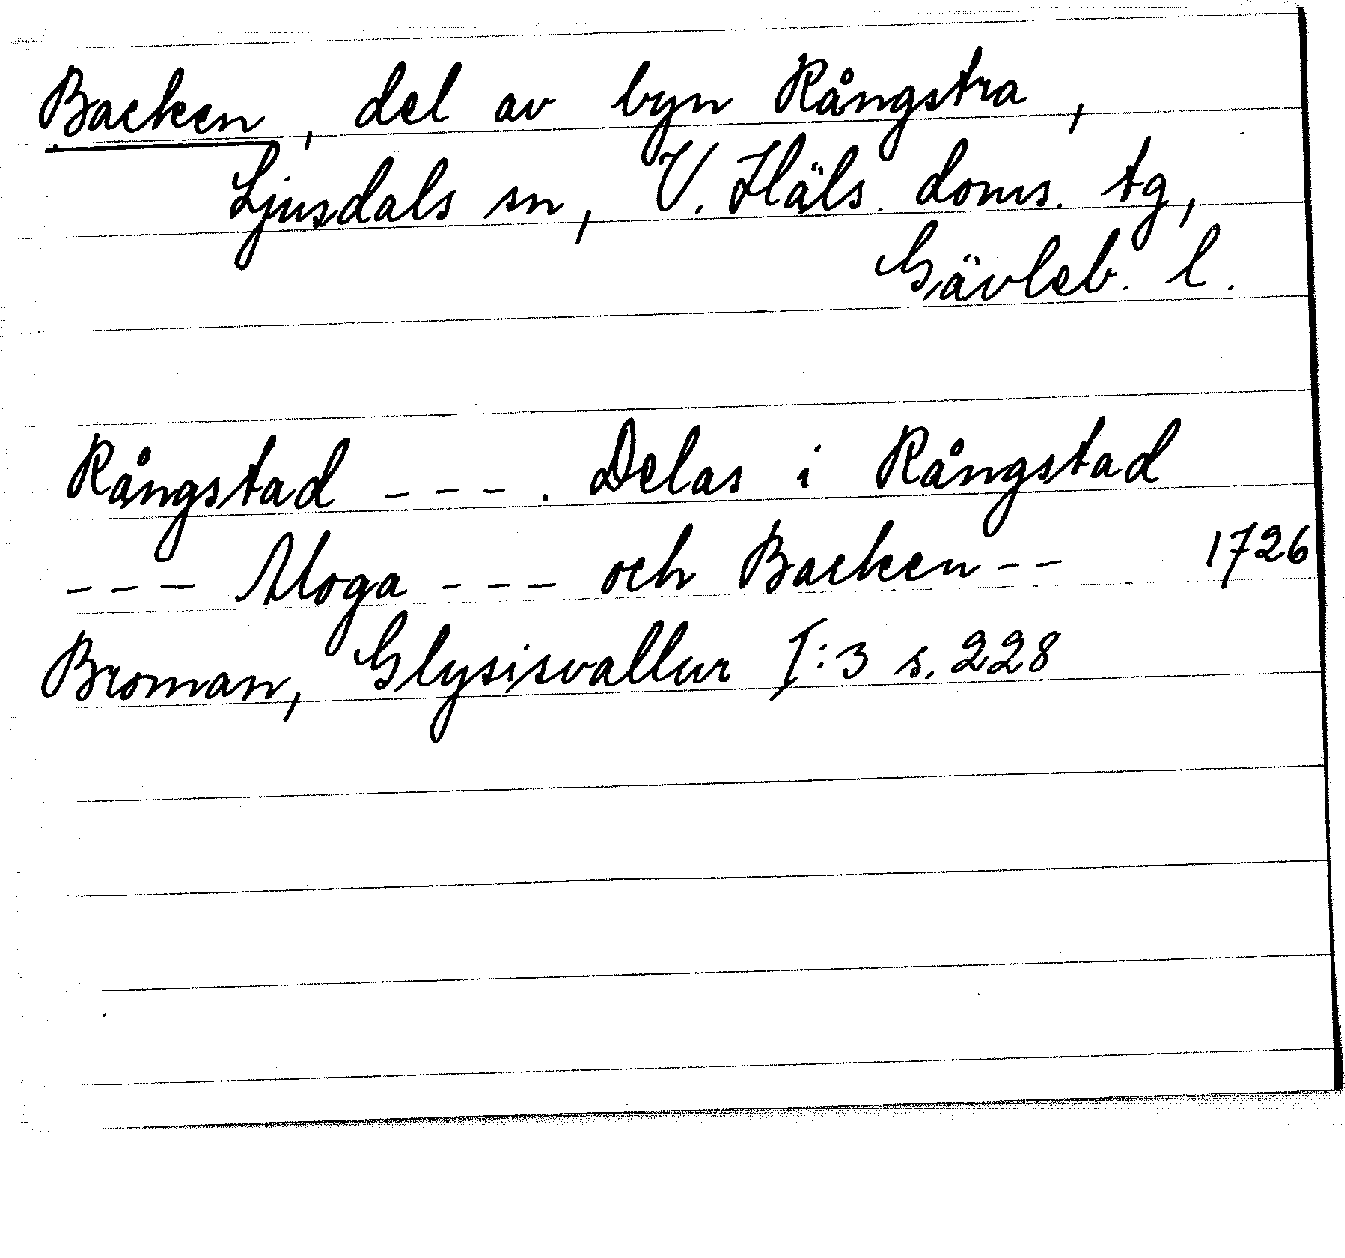 Backen, del av byn Rångstra,
Ljusdals sn, V. Häls. doms. tg,
Gävleb. l.
Rångstad - - - . Delas i Rångstad
- - - Moga - - - och Backen - - 1726
Broman, Glysisvallur I:3 s. 228